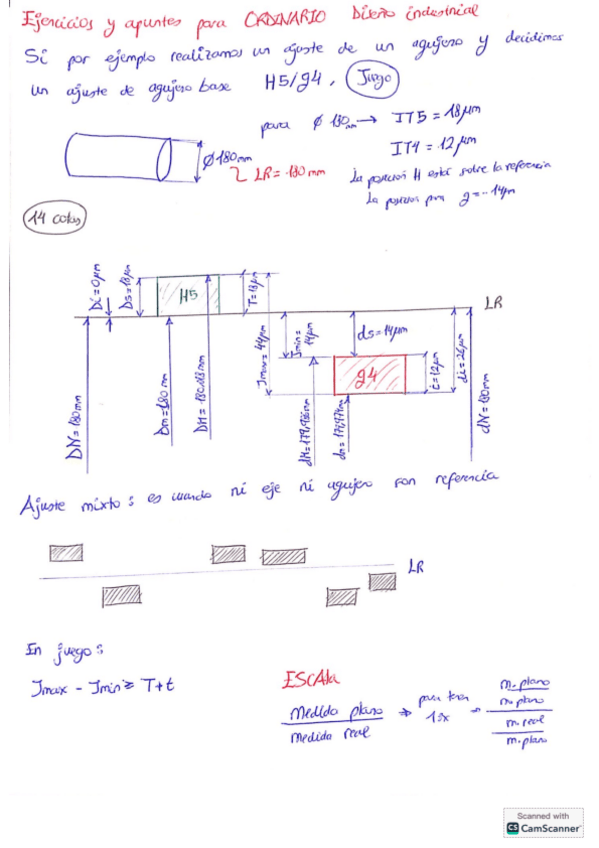 Ejercicios y apuntes para ORDINARIO Diseño industrial
Si por ejemplo realizamos un ajuste de un agujero y decidimos
un ajuste de agujero base H5/g4, Juego
para ϕ 180mm → IT5 = 18μm
IT4 = 12μm
ϕ180mm
LR = 180mm
La posición H está sobre la referencia
La posición para g = -14μm
14 cotas
Di = 0μm
Ds = 18μm
H5
T = 18μm
LR
Jmax = 44μm
Jmin = 14μm
ds = 14μm
g4
t = 12μm
di = 26μm
DN = 180mm
Dm = 180mm
DM = 180,018mm
dM = 179,986mm
dm = 179,974mm
dN = 180mm
Ajuste mixto: es cuando ni eje ni agujero son referencia
LR
En juego:
Jmax - Jmin = T+t
ESCALA
Medida plano
Medida real
m. plano
m. plano
m. real
m. plano
Scanned with
CS CamScanner